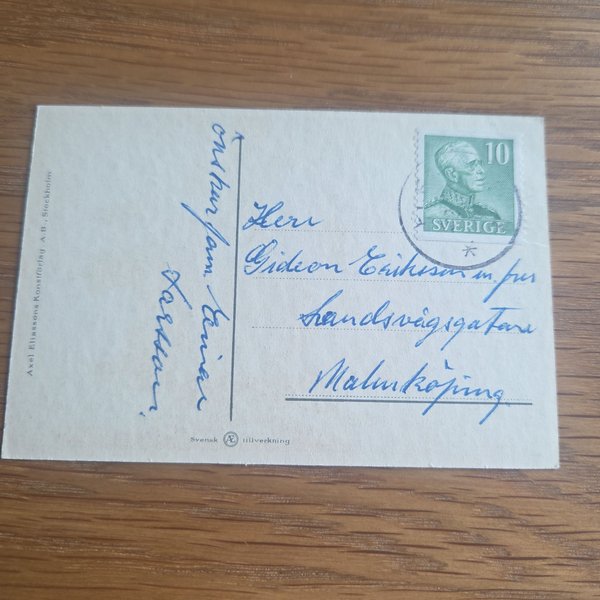 Axel Eliassons Konstförlag A.-B., Stockholm
önskar fam Einar
Larsson.
10
SVERIGE
Herr
Gideon Eriksson m fru
Landsvägsgatan
Malmköping
Svensk Æ tillverkning